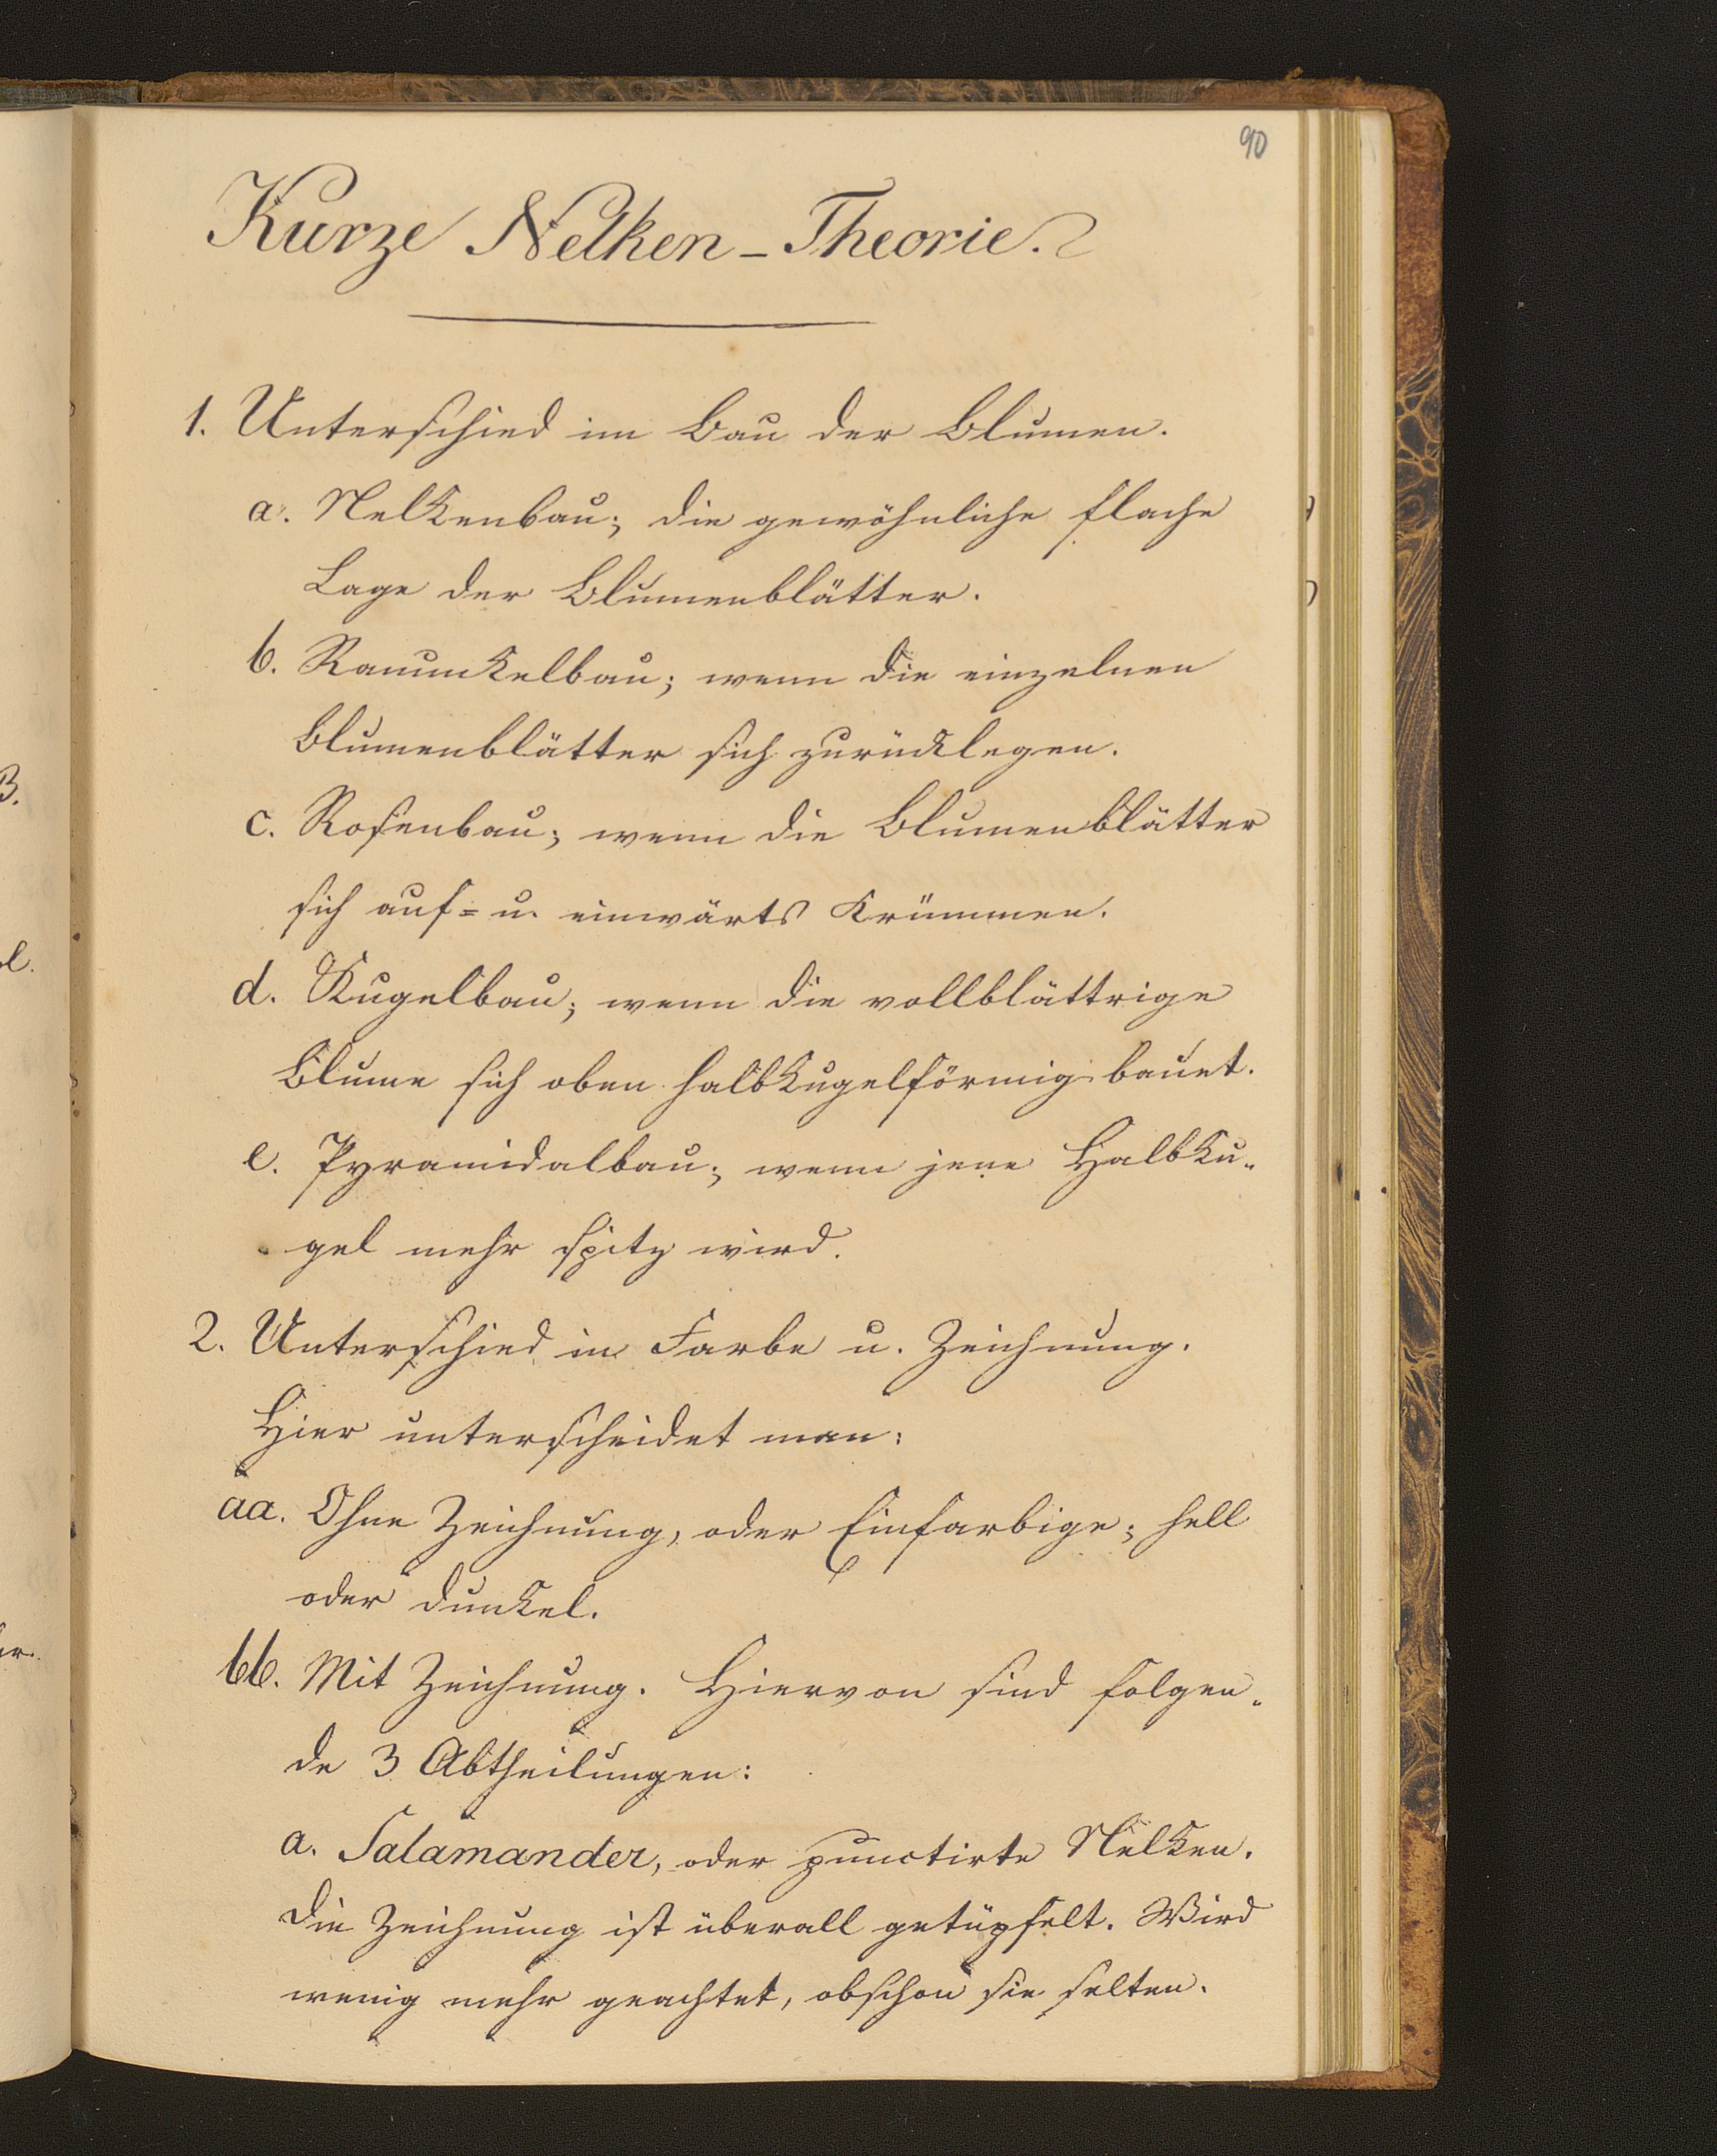 90
Kurze Nelken-Theorie.
1. Unterschied im Bau der Blumen.
a. Nelkenbau; die gewöhnliche flache
Lage der Blumenblätter.
b. Ranunkelbau; wenn die einzelnen
Blumenblätter sich zurücklegen.
c. Rosenbau; wenn die Blumenblätter
sich auf= u. einwärts krümmen.
d. Kugelbau; wenn die vollblättrige
Blume sich oben halbkugelförmig bauet.
e. Pyramidalbau; wenn jene Halbku-
gel mehr spitz wird.
2. Unterschied in Farbe u. Zeichnung.
Hier unterscheidet man:
aa. Ohne Zeichnung, oder Einfarbige; hell
oder dunkel.
bb. Mit Zeichnung. Hiervon sind folgen-
de 3 Abtheilungen:
a. Salamander, oder punctirte Nelken.
Die Zeichnung ist überall getüpfelt. Wird
wenig mehr geachtet, obschon sie selten.